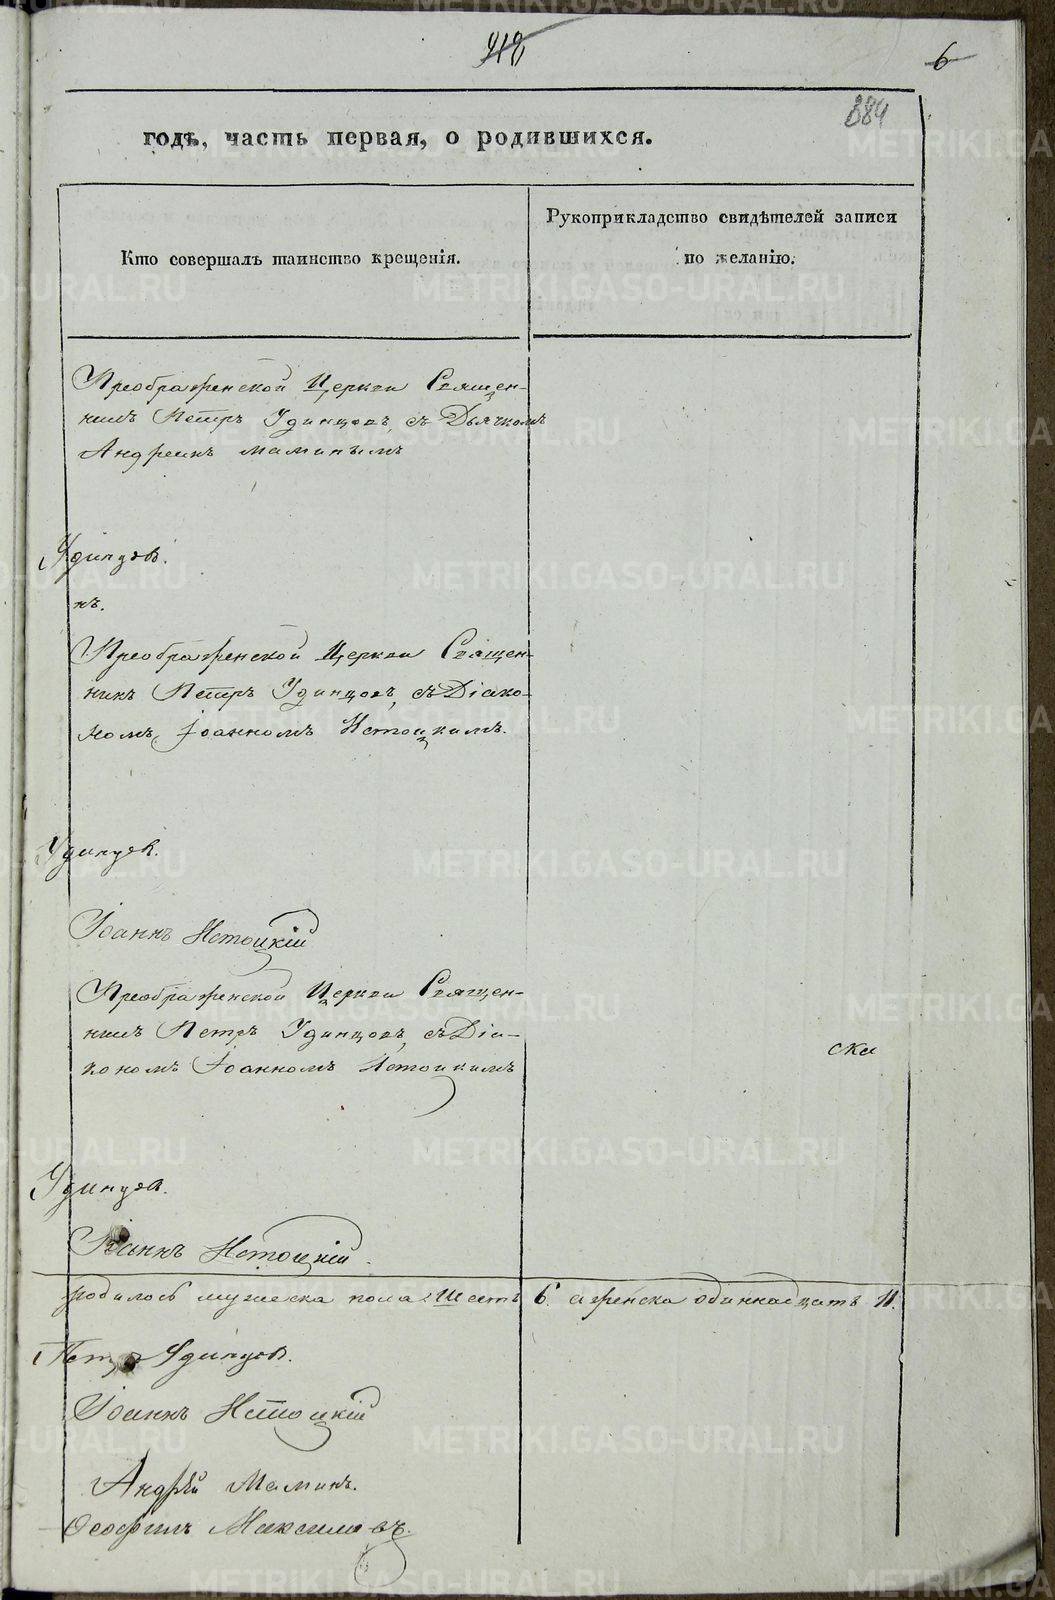 418
6
384
годѣ, часть первая, о родившихся.
Кто совершалъ таинство крещенія.
Рукоприкладство свидѣтелей записи
по желанію.
Преображенской Церкви Священ-
никъ Петръ Удинцовъ, съ Дьячкомъ
Андреимъ Маминымъ
Удинцов.
нъ.
Преображенской Церкви Священ-
никъ Петръ Удинцовъ, съ Діако-
номъ, Іоанномъ Истоцкимъ.
Удинцов.
Іоаннъ Истоцкій
Преображенской Церкви Священ-
никъ Петръ Удинцовъ, съ Діа-
кономъ Іоанномъ Истоцкимъ
ска
Удинцов.
Іоаннъ Истоцкій.
родилось мужеска пола: Шесть 6. а женска одиннадцать 11.
Петръ Удинцов.
Іоаннъ Истоцкій
Андрей Маминъ.
Ѳеофилъ Максимовъ.
METRIKI.GASO-URAL.RU